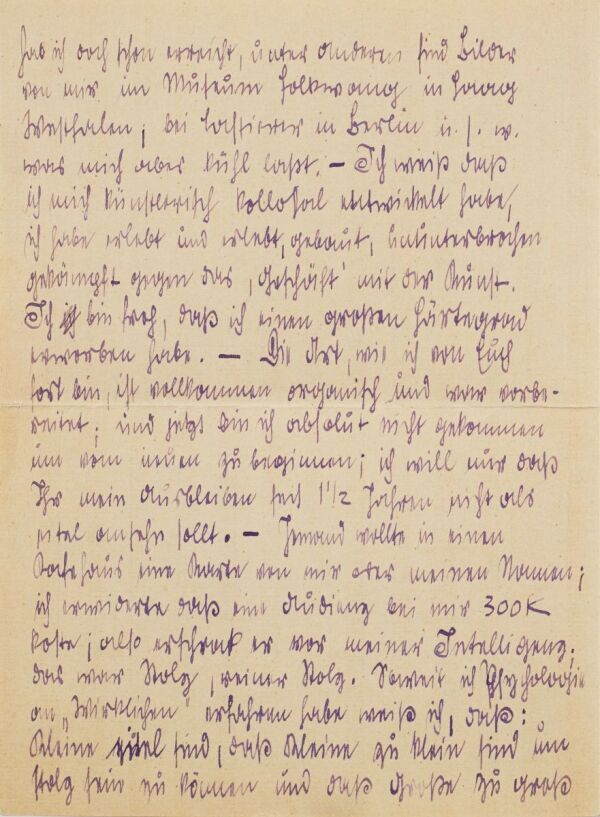 hab ich doch schon erreicht, unter anderen sind Bilder
von mir im Museum Folkwang in Haag
Westfalen; bei Cassierer in Berlin u. s. w.
was mich aber kühl laßt. – Ich weiß daß
ich mich künstlerisch kollosal entwickelt habe,
ich habe erlebt und erlebt, gebaut, ununterbrochen
gekämpft gegen das ‚Geschäft' mit der Kunst.
Ich bin froh, daß ich einen großen Härtegrad
erworben habe. – Die Art, wie ich von Euch
fort bin, ist vollkommen organisch und war vorbe-
reitet; und jetzt bin ich absolut nicht gekommen
um vom neuen zu beginnen; ich will nur daß
Ihr mein Ausbleiben seit 1 1/2 Jahren nicht als
eitel ansehn sollt. – Jemand wollte in einen
Kafehaus eine Karte von mir oder meinen Namen;
ich erwiderte daß eine Audienz bei mir 300 K
koste; also erschrak er vor meiner Intelligenz;
das war Stolz, reiner Stolz. Soweit ich Psychologie
an „Wirklichen" erfahren habe weiß ich, daß:
Kleine eitel sind, daß Kleine zu klein sind um
stolz sein zu können und daß Große zu groß